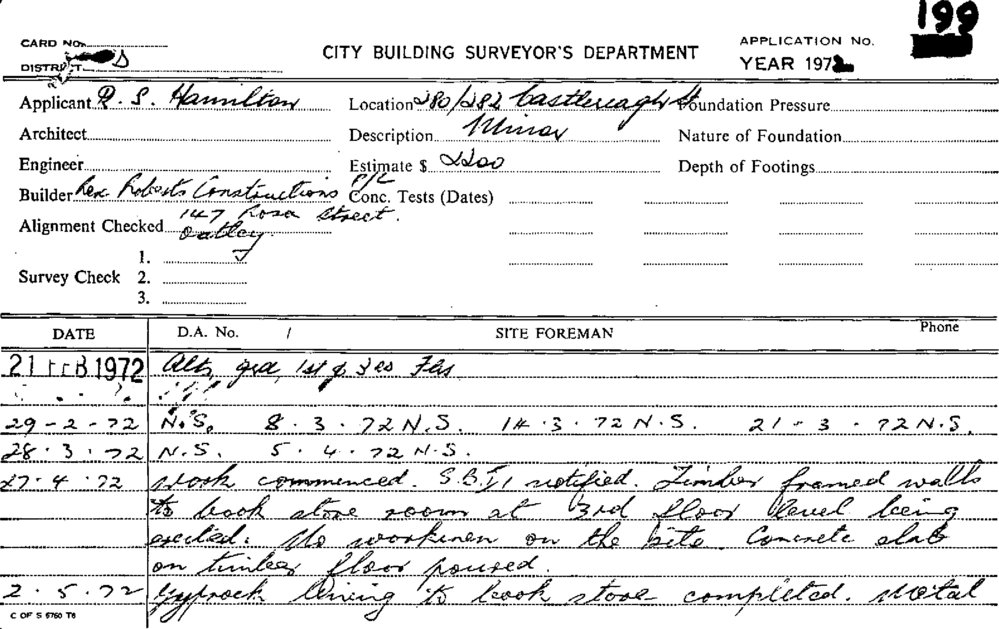 199
CARD No.
APPLICATION No.
CITY BUILDING SURVEYOR'S DEPARTMENT
DISTRICT
YEAR 1972
Applicant R. S. Hamilton Location 280/282 Castlereagh St Foundation Pressure
Architect Description Minor Nature of Foundation
Engineer Estimate $ 2200 Depth of Footings
Builder Rex Roberts Constructions P/L Conc. Tests (Dates)
147 Rosa Street.
Alignment Checked Oatley
1.
Survey Check 2.
3.
DATE D.A. No. / SITE FOREMAN Phone
21 FEB 1972 Alts, grd, 1st & Flrs
29-2-72 N.S. 8.3.72 N.S. 14.3.72 N.S. 21-3.72 N.S.
28.3.72 N.S. 5.4.72 N.S.
27.4.72 Work commenced. S.B.I. notified. Timber framed walls
to book store room at 3rd floor level being
erected. No workmen on the site. Concrete slab
on timber floor poured.
2.5.72 Gyprock lining to book store completed. Metal
C OF S 6760 T6